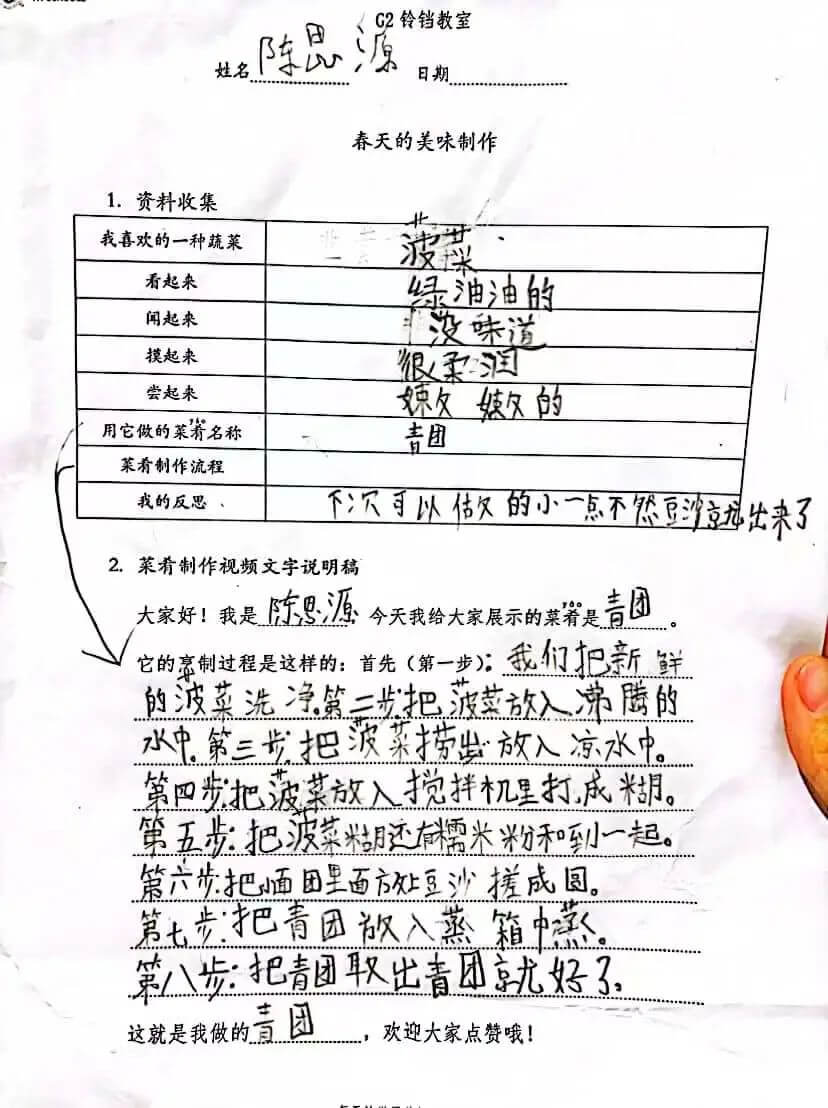 G2 铃铛教室
姓名 陈思源 日期
春天的美味制作
1. 资料收集
我喜欢的一种蔬菜 菠菜
看起来 绿油油的
闻起来 没味道
摸起来 很柔润
尝起来 嫩嫩的
用它做的菜肴名称 青团
菜肴制作流程
我的反思 下次可以做的小一点不然豆沙就出来了
2. 菜肴制作视频文字说明稿
大家好！我是陈思源，今天我给大家展示的菜肴是青团。
它的烹制过程是这样的：首先（第一步）：我们把新鲜
的菠菜洗净。第二步：把菠菜放入沸腾的
水中。第三步：把菠菜捞出放入凉水中。
第四步：把菠菜放入搅拌机里打成糊。
第五步：把菠菜糊还有糯米粉和到一起。
第六步：把面团里面放上豆沙搓成圆。
第七步：把青团放入蒸箱中蒸。
第八步：把青团取出青团就好了。
这就是我做的青团，欢迎大家点赞哦！